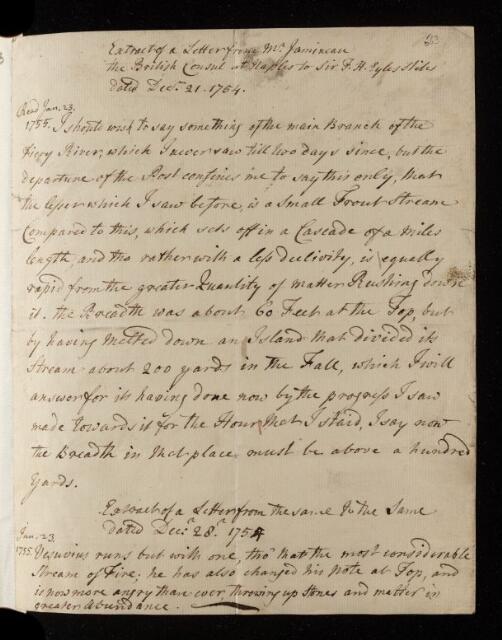 253
Extract of a Letter from Mr. Jamineau
the British Consul at Naples to Sir F. H. Eyles Stiles
dated Decr. 21. 1754.
Read Jan. 23.
1755. I should wish to say something of the main Branch of the
Fiery River, which I never saw till two days since, but the
departure of the Post confines me to say this only, that
the lesser which I saw before, is a Small Trout Stream
Compared to this, which sets off in a Cascade of a miles
length and tho rather with a less declivity, is equally
rapid from the greater Quantity of matter Rushing down
it. the Breadth was about 60 Feet at the Top, but
by having Melted down an Island that divided its
Stream about 200 yards in the Fall, which I will
answer for its having done now by the progress I saw
made towards it for the Hour that I staid, I say now
the Breadth in that place must be above a hundred
Yards.
Extract of a Letter from the same to the Same
dated Decr. 28. 1754
Jan. 23.
1755. Vesuvius runs but with one, tho' that the most considerable
Stream of Fire; he has also changed his Note at Top, and
is now more angry than ever throwing up stones and matter in
greater abundance.